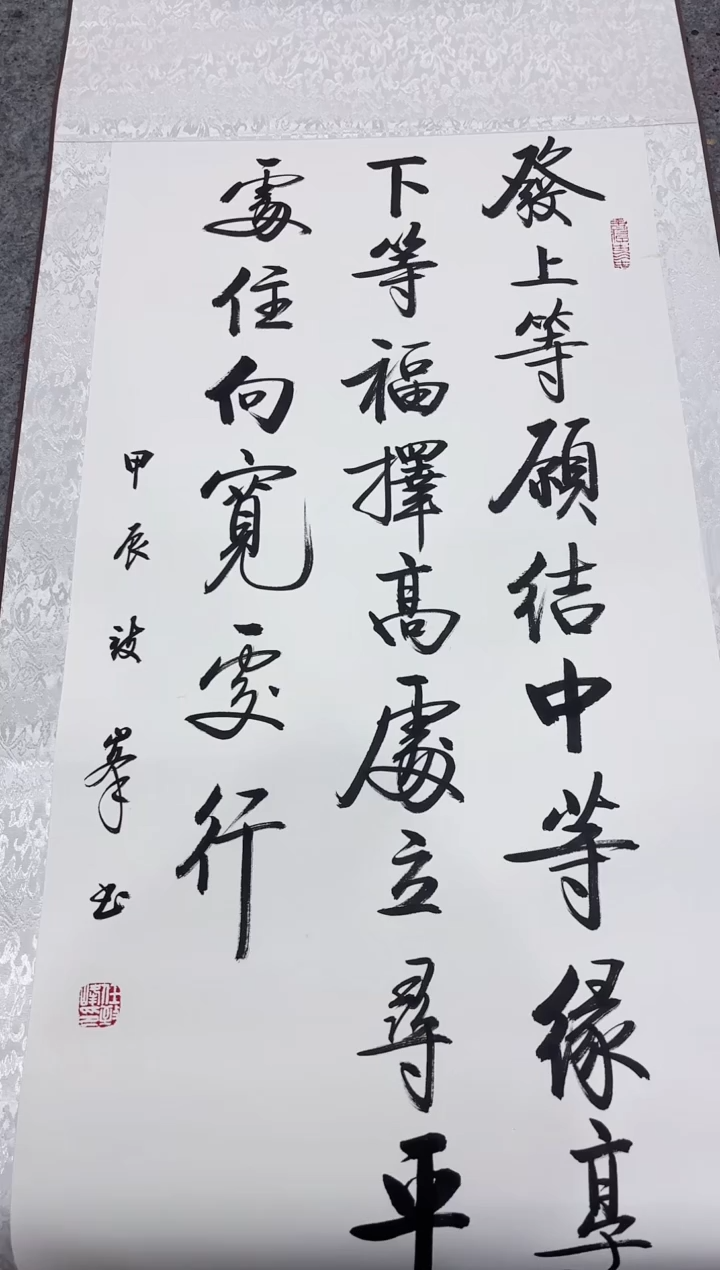 發上等願結中等緣享
下等福擇高處立尋平
處住向寬處行
甲辰 峯书